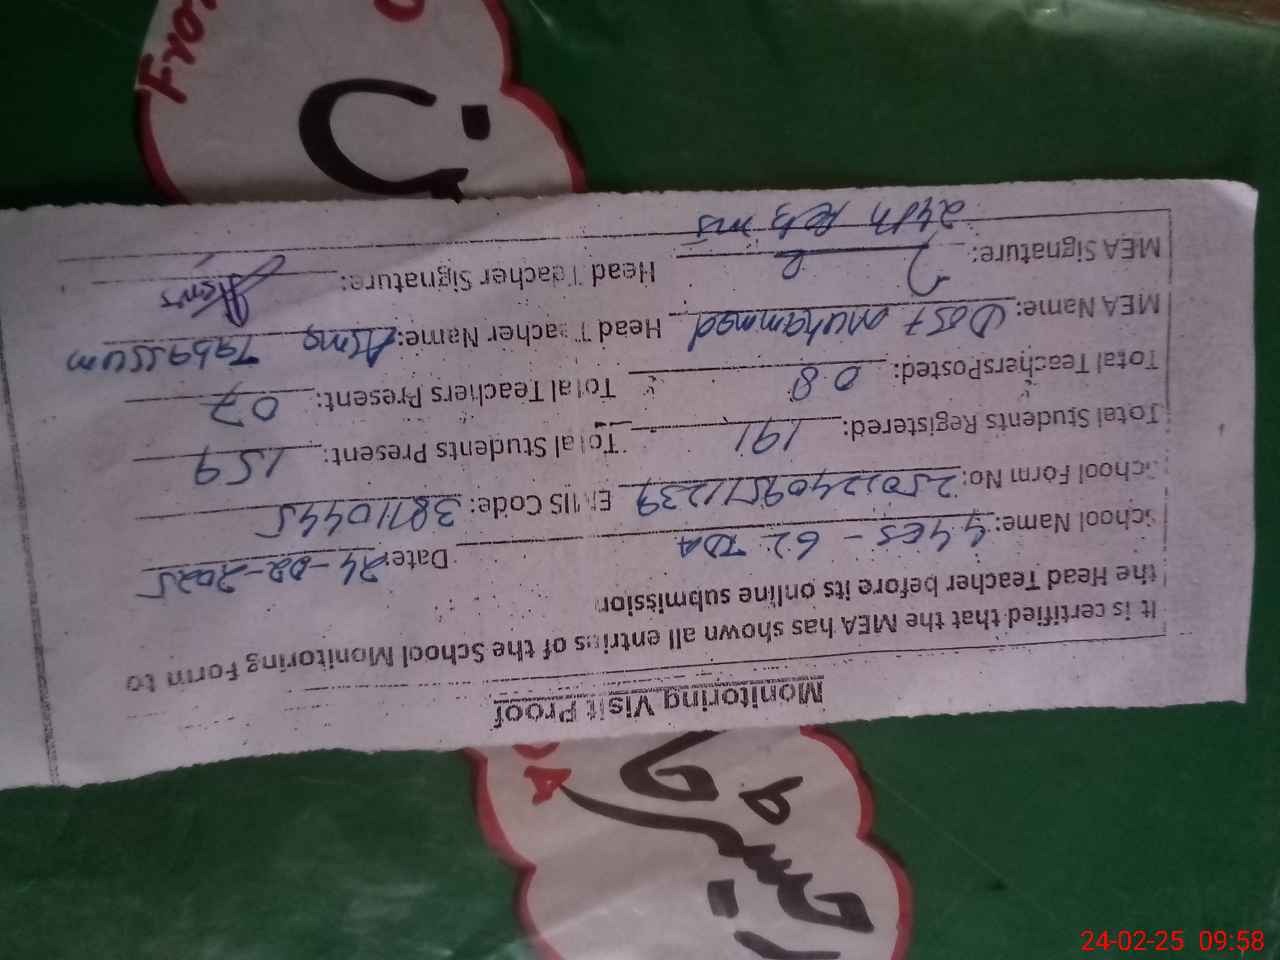 Monitoring Visit Proof
It is certified that the MEA has shown all entries of the School Monitoring Form to
the Head Teacher before its online submission
School Name: GGES - 62 TDA Date: 24-02-2025
School Form No: EMIS Code: 38110445
Total Students Registered: 191 Total Students Present: 159
Total TeachersPosted: 08 Total Teachers Present: 07
MEA Name: Dost Muhammad Head Teacher Name: Asma Tabassum
MEA Signature: Head Teacher Signature: Asma
24th
24-02-25 09:58